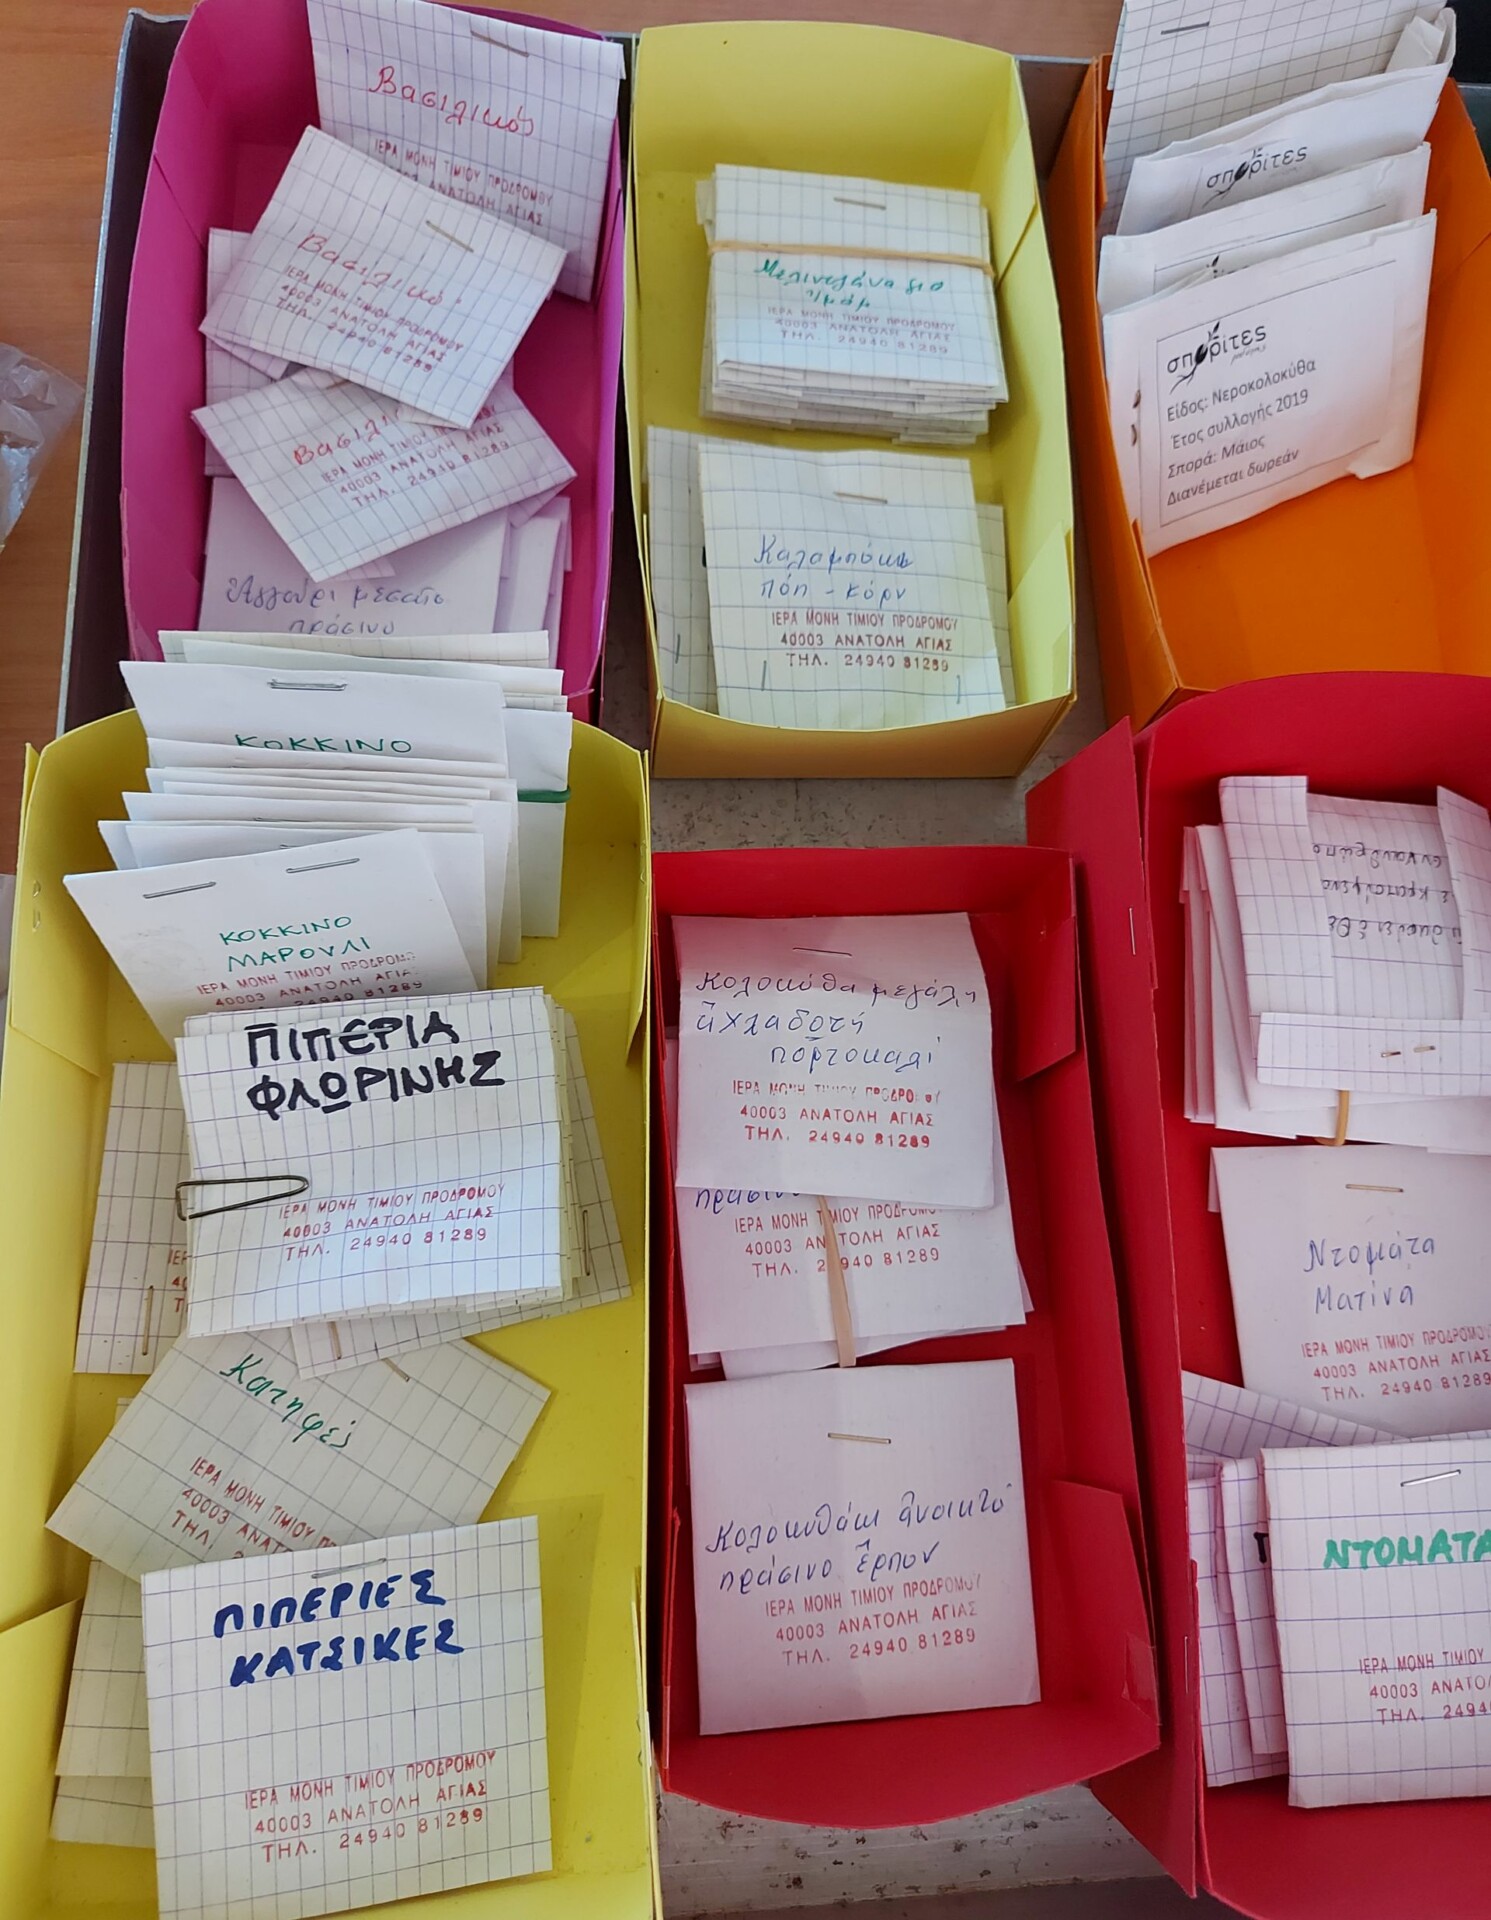 Βασιλικός
ΙΕΡΑ ΜΟΝΗ ΤΙΜΙΟΥ ΠΡΟΔΡΟΜΟΥ
ΑΝΑΤΟΛΗ ΑΓΙΑΣ
Βασιλικός
ΙΕΡΑ ΜΟΝΗ ΤΙΜΙΟΥ ΠΡΟΔΡΟΜΟΥ
40003 ΑΝΑΤΟΛΗ ΑΓΙΑΣ
ΤΗΛ. 24940 81289
ΙΕΡΑ ΜΟΝΗ ΤΙΜΙΟΥ
40003 ΑΝΑΤΟΛΗ ΑΓΙΑΣ
ΤΗΛ. 24940 81289
Ἀγγούρι μεσαῖο
πράσινο
Μελιντζάνα για
ἰμάμ
ΙΕΡΑ ΜΟΝΗ ΤΙΜΙΟΥ ΠΡΟΔΡΟΜΟΥ
40003 ΑΝΑΤΟΛΗ ΑΓΙΑΣ
ΤΗΛ. 24940 81289
Καλαμπόκι
πόπ - κόρν
ΙΕΡΑ ΜΟΝΗ ΤΙΜΙΟΥ ΠΡΟΔΡΟΜΟΥ
40003 ΑΝΑΤΟΛΗ ΑΓΙΑΣ
ΤΗΛ. 24940 81289
σπορίτες
σπορίτες
Είδος: Νεροκολοκύθα
Έτος συλλογής 2019
Σπορά: Μάιος
Διανέμεται δωρεάν
ΚΟΚΚΙΝΟ
ΚΟΚΚΙΝΟ
ΜΑΡΟΥΛΙ
ΙΕΡΑ ΜΟΝΗ ΤΙΜΙΟΥ ΠΡΟΔΡΟΜ
40003 ΑΝΑΤΟΛΗ ΑΓΙΑ
24940 81289
ΠΙΠΕΡΙΑ
ΦΛΩΡΙΝΗΣ
ΙΕΡΑ ΜΟΝΗ ΤΙΜΙΟΥ ΠΡΟΔΡΟΜΟΥ
40003 ΑΝΑΤΟΛΗ ΑΓΙΑΣ
ΤΗΛ. 24940 81289
Κατηφές
ΙΕΡΑ ΜΟΝΗ ΤΙΜΙΟΥ
40003 ΑΝΑΤ
ΤΗΛ.
ΠΙΠΕΡΙΕΣ
ΚΑΤΣΙΚΕΣ
ΙΕΡΑ ΜΟΝΗ ΤΙΜΙΟΥ ΠΡΟΔΡΟΜΟΥ
40003 ΑΝΑΤΟΛΗ ΑΓΙΑΣ
ΤΗΛ. 24940 81289
Κολοκύθα μεγάλη
ἀχλαδοτή
πορτοκαλί
ΙΕΡΑ ΜΟΝΗ ΤΙΜΙΟΥ ΠΡΟΔΡΟΜΟΥ
40003 ΑΝΑΤΟΛΗ ΑΓΙΑΣ
ΤΗΛ. 24940 81289
πράσινο
ΙΕΡΑ ΜΟΝΗ ΤΙΜΙΟΥ ΠΡΟΔΡΟΜ
40003 ΑΝΑΤΟΛΗ ΑΓΙΑΣ
ΤΗΛ. 24940 81289
Κολοκυθάκι ἀνοικτό
πράσινο ἕρπον
ΙΕΡΑ ΜΟΝΗ ΤΙΜΙΟΥ ΠΡΟΔΡΟΜΟΥ
40003 ΑΝΑΤΟΛΗ ΑΓΙΑΣ
ΤΗΛ. 24940 81289
Ντομάτα
Ματίνα
ΙΕΡΑ ΜΟΝΗ ΤΙΜΙΟΥ ΠΡΟΔΡΟΜΟΥ
40003 ΑΝΑΤΟΛΗ ΑΓΙΑΣ
ΤΗΛ. 24940 81289
ΝΤΟΜΑΤΑ
ΙΕΡΑ ΜΟΝΗ ΤΙΜΙΟΥ
40003 ΑΝΑΤΟ
ΤΗΛ. 2494